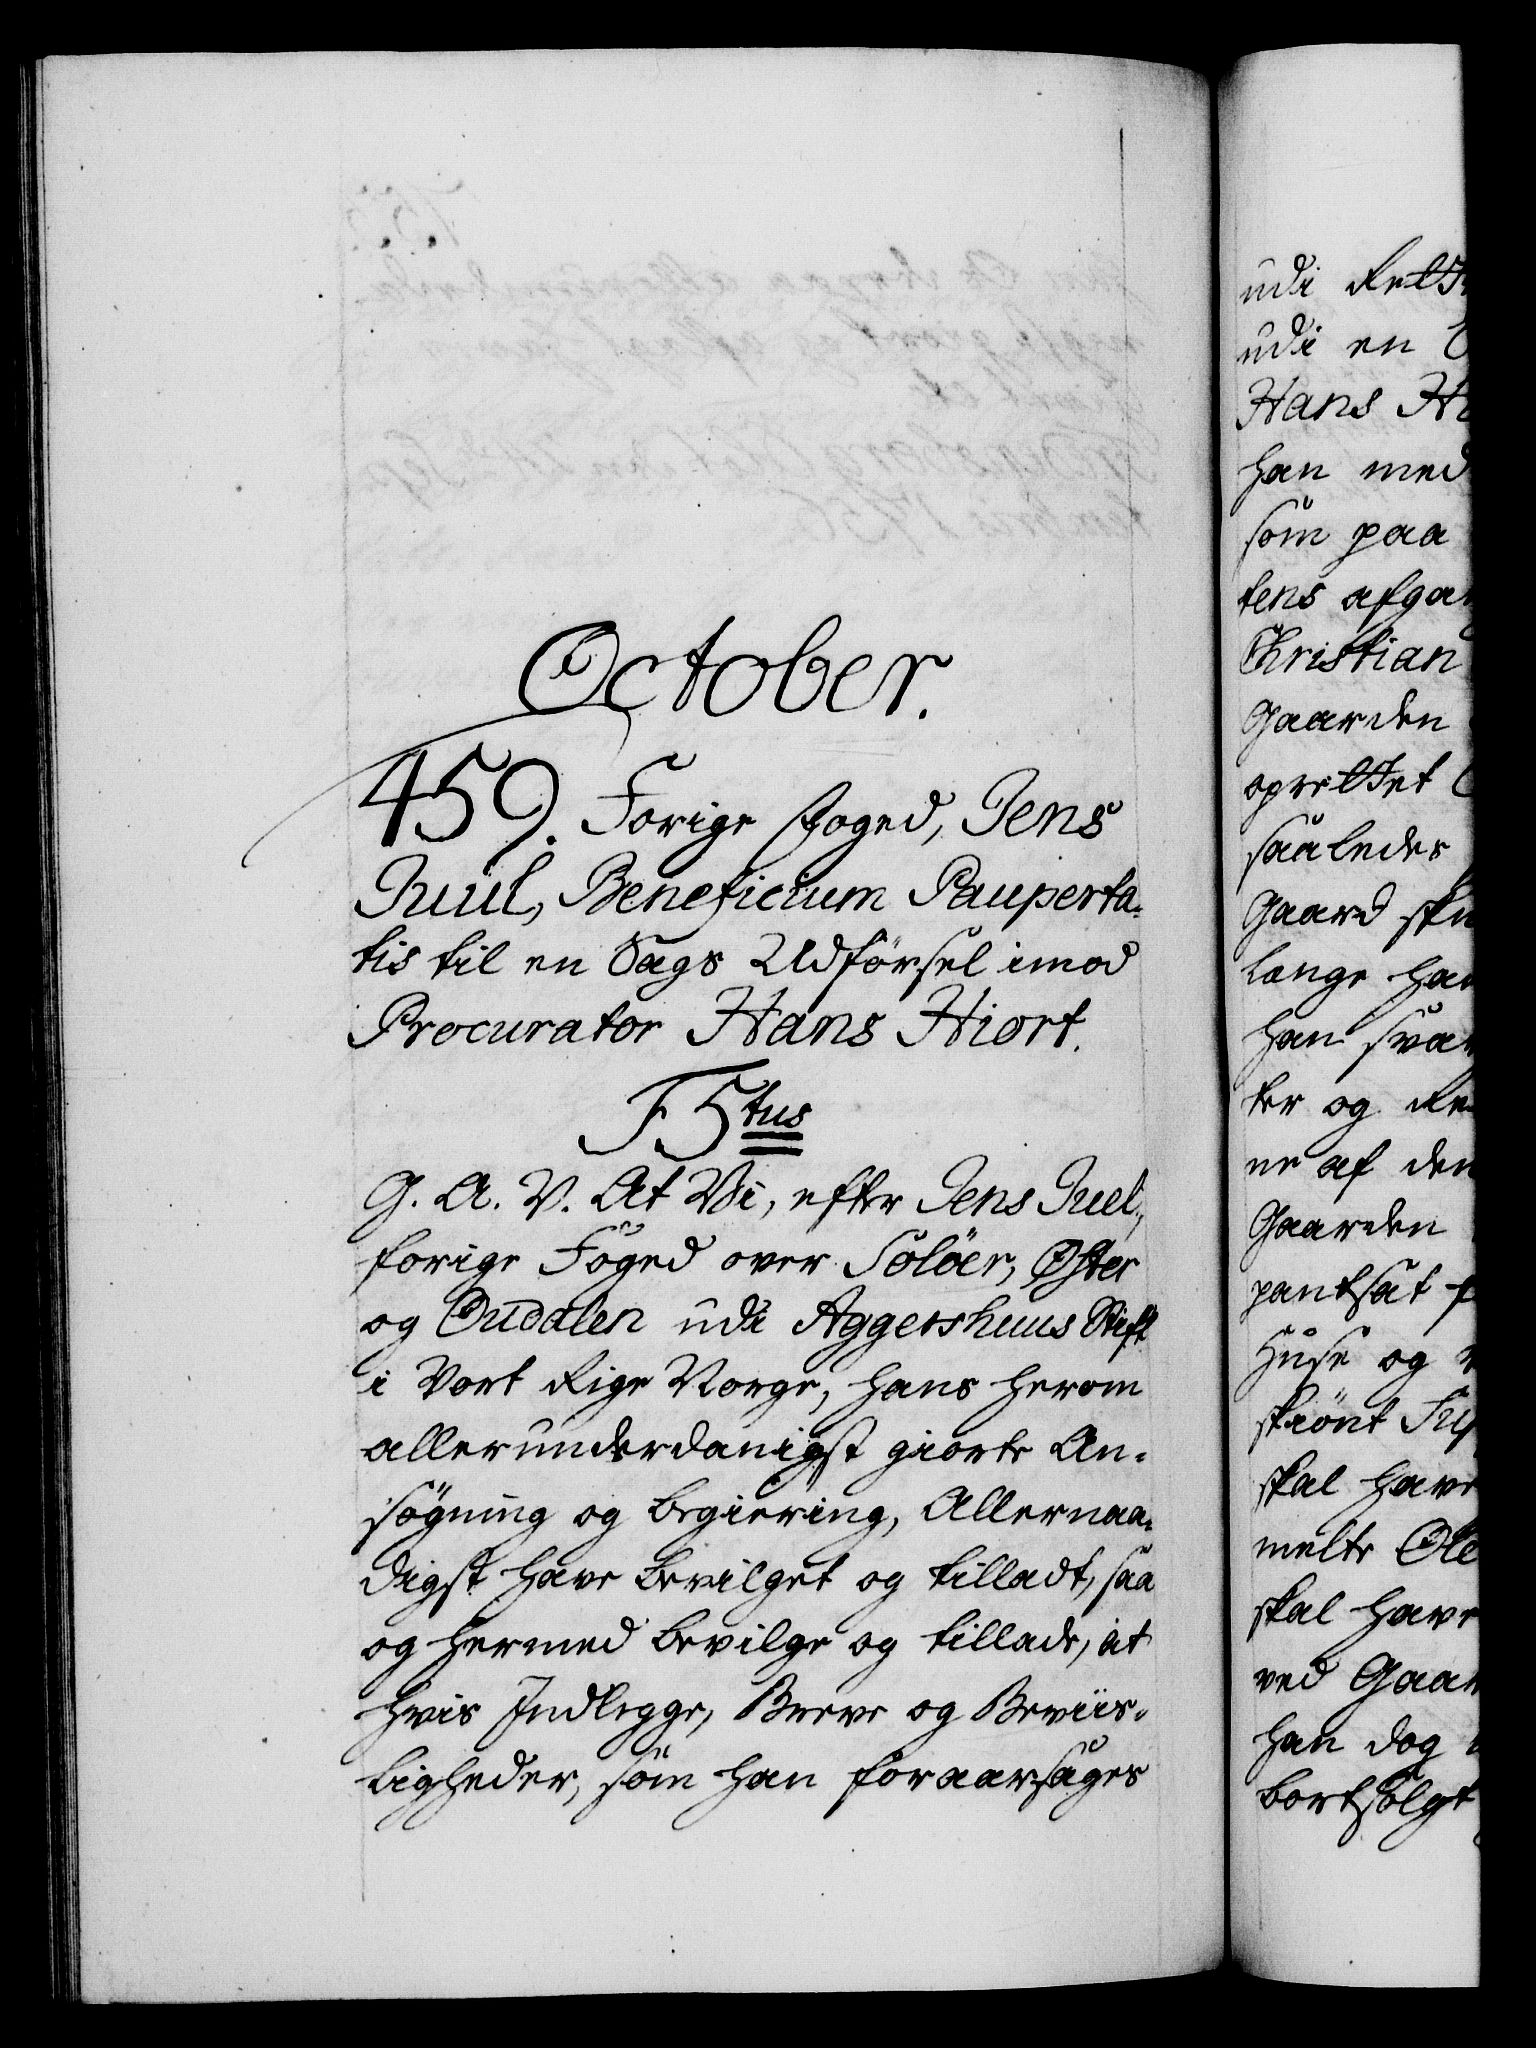 October.
459. Forige Foged, Jens
Juul, Beneficium Pauperta-
tis til en Sags Udförsel imod
Procurator Hans Hiort.
F 5tus
G. A. V. At Vi, efter Jens Juel,
forige Foged over Solöer, Öster
og Oudalen udi Aggershuus Stift
i Vort Rige Norge, hans herom
allerunderdanigst giorte An-
søgning og Begiering, Allernaa-
digst have bevilget og tilladt, saa
og hermed bevilge og tillade, at
hvis Indlegge, Breve og Beviis-
ligheder, som han foraarsages
udi
udi en
Hans
han med
som paa
tens
Christian
Gaarden
oprettet
saaledes
Gaard
længe
han
ter og
ne af den
Gaarden
pantsat
Huse og
skiönt
skal have
melte Ole
skal have
ved
han dog
bortsolgt